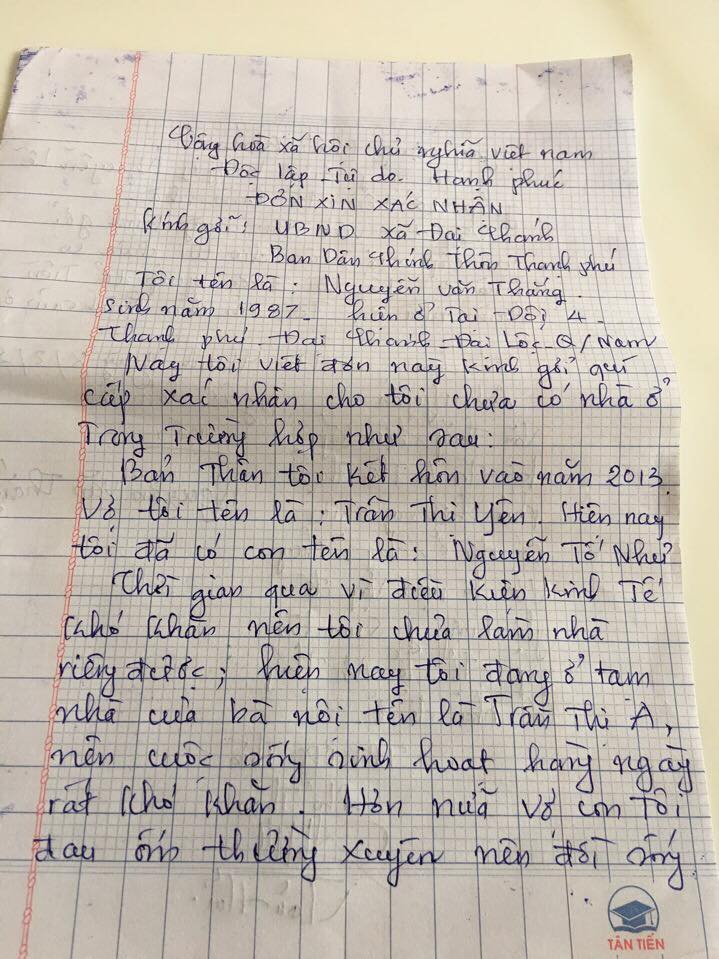 Cộng hoà xã hôi chủ nghĩa việt nam
Đôc lâp Tự do. Hanh phúc
ĐƠN XIN XÁC NHẬN
Kính gởi: UBND xã Đai thanh
Ban Dân thính thôn Thanh phú
Tôi tên là: Nguyễn văn Thắng.
sinh năm 1987. hiện ở Tai - Đội 4 -
Thanh phú - Đai thanh - Đai Lộc - Q/Nam
Nay tôi viết đơn này kính gởi quí
cấp xác nhân cho tôi chưa có nhà ở
Trong Trường hợp như sau:
Bản Thân tôi kết hôn vào năm 2013.
Vợ tôi tên là: Trần Thi Yên. Hiên nay
tôi đã có con tên là: Nguyễn Tố Như
Thời gian qua vì điều kiên kinh Tế
khó khăn nên tôi chưa làm nhà
riêng được; hiện nay tôi đang ở tam
nhà của bà nôi tên là Trần Thi A,
nên cuôc sống sinh hoat hàng ngày
rất khó khăn. Hơn nữa vợ con Tôi
đau ốm thường xuyên nên đời sống
TÂN TIẾN